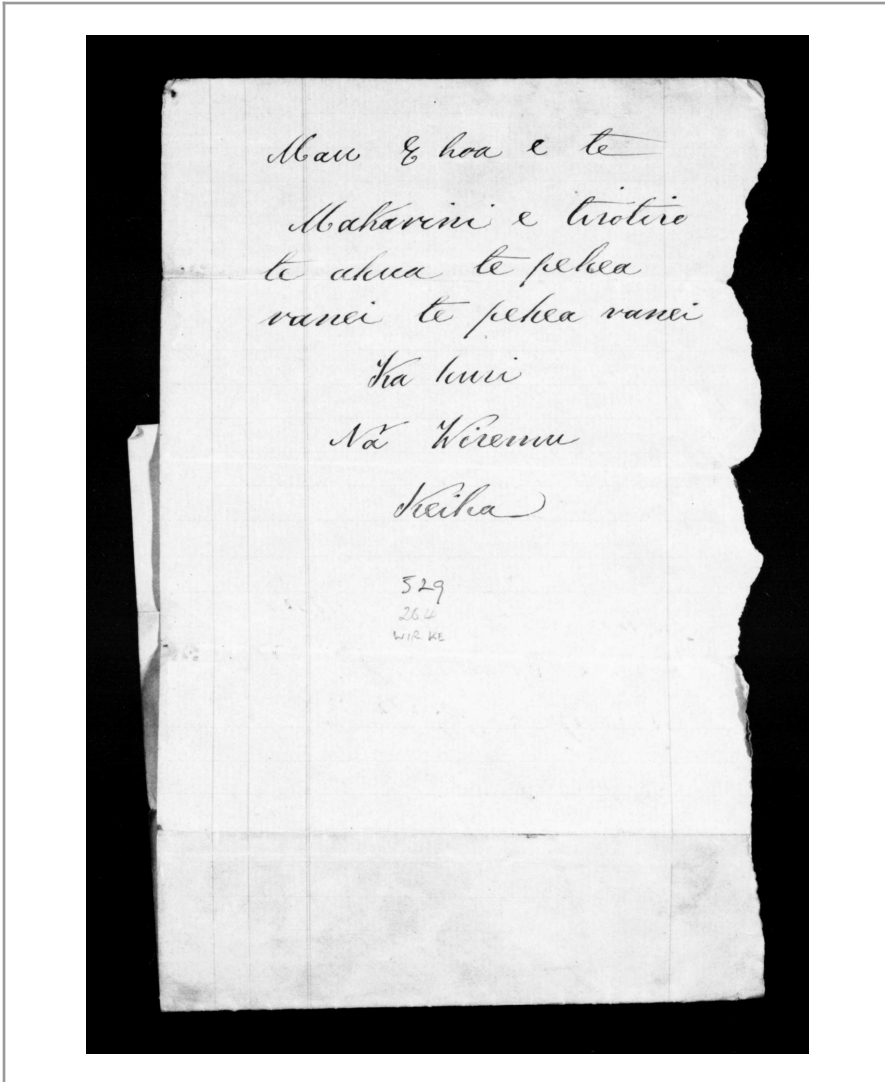 Mau E hoa e te
Makarini e tirotiro
te ahua te pehea
ranei te pehea ranei
Ka huri
Nā Wiremu
Keiha
529
264
WIR KE